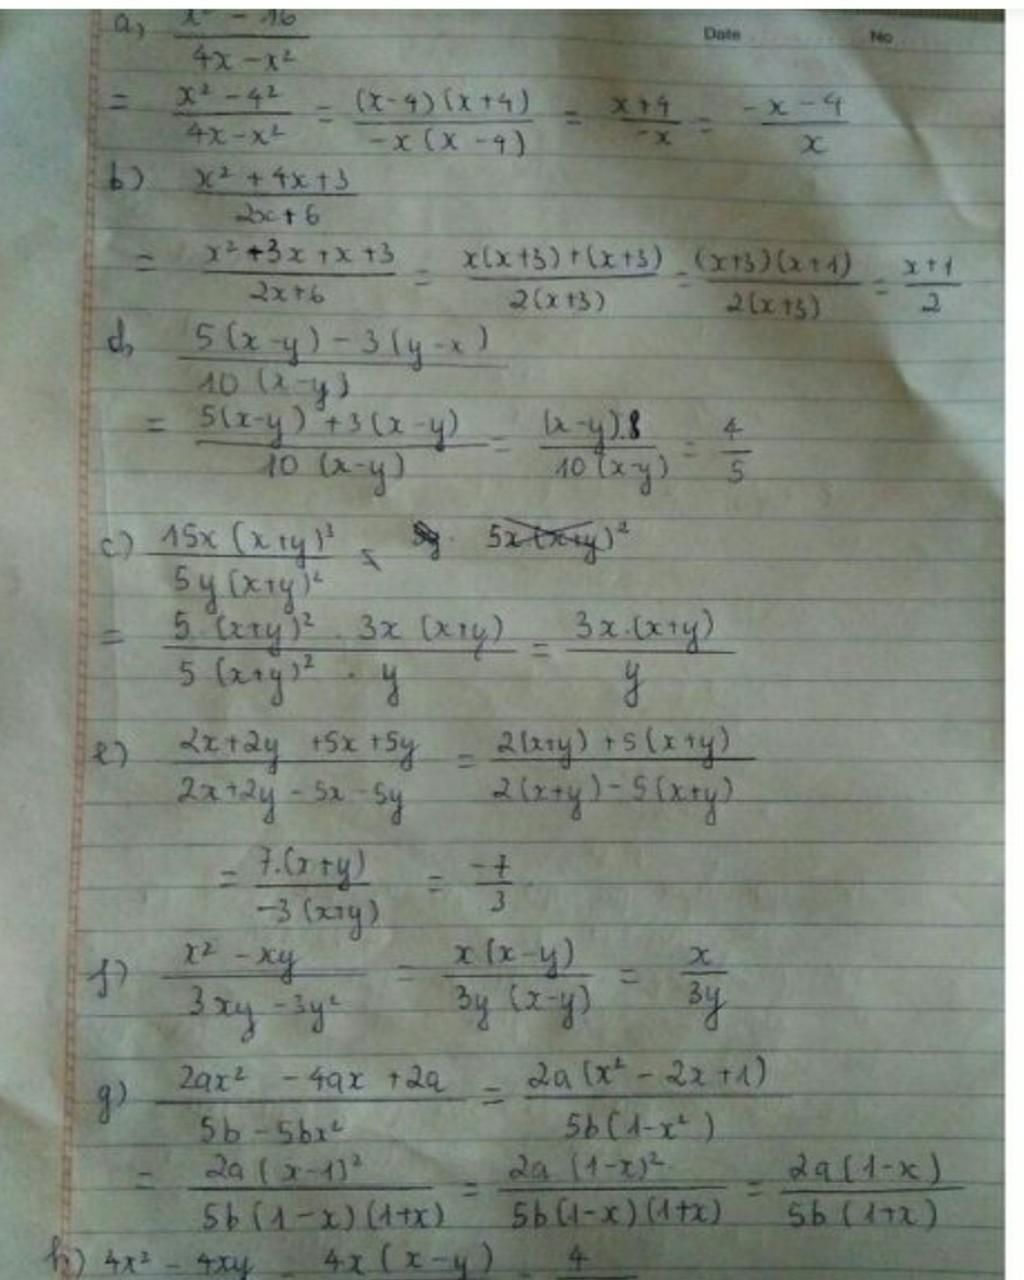 Date No
a, x² - 16 / 4x - x²
= x² - 4² / 4x - x² = (x-4)(x+4) / -x(x-4) = x+4 / -x = -x-4 / x
b) x² + 4x + 3 / 2x + 6
= x² + 3x + x + 3 / 2x + 6 = x(x+3) + (x+3) / 2(x+3) = (x+3)(x+1) / 2(x+3) = x+1 / 2
d, 5(x-y) - 3(y-x) / 10(x-y)
= 5(x-y) + 3(x-y) / 10(x-y) = (x-y).8 / 10(x-y) = 4 / 5
c) 15x(x+y)³ / 5y(x+y)² =
= 5(x+y)² . 3x(x+y) / 5(x+y)² . y = 3x.(x+y) / y
e) 2x+2y +5x+5y / 2x+2y-5x-5y = 2(x+y)+5(x+y) / 2(x+y)-5(x+y)
= 7.(x+y) / -3(x+y) = -7 / 3
f) x² - xy / 3xy - 3y² = x(x-y) / 3y(x-y) = x / 3y
g) 2ax² - 4ax + 2a / 5b - 5bx² = 2a(x² - 2x + 1) / 5b(1-x²)
= 2a(x-1)² / 5b(1-x)(1+x) = 2a(1-x)² / 5b(1-x)(1+x) = 2a(1-x) / 5b(1+x)
h) 4x² - 4xy 4x(x-y) 4